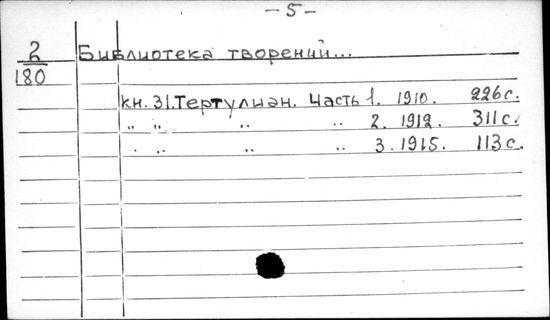 -5-
2 Библиотека творений...
180
кн. 31. Тертулиан. Часть 1. 1910. 226 с.
" " " " 2. 1912. 311 с.
" " " " 3. 1915. 113 с.